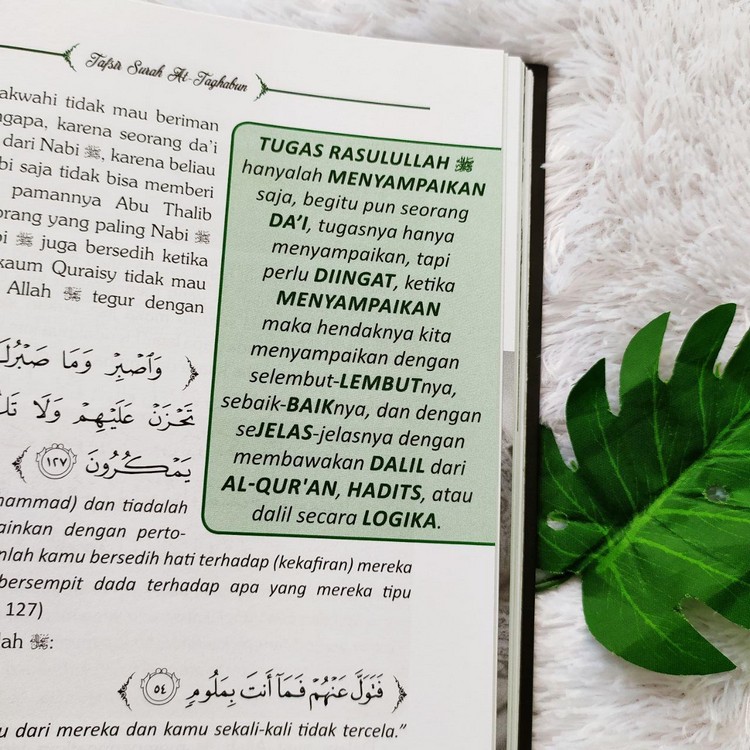 Tafsir Surah At-Taghabun
akwahi tidak mau beriman
ngapa, karena seorang da'i
dari Nabi ﷺ, karena beliau
bi saja tidak bisa memberi
pamannya Abu Thalib
orang yang paling Nabi ﷺ
bi ﷺ juga bersedih ketika
kaum Quraisy tidak mau
Allah ﷻ tegur dengan
TUGAS RASULULLAH ﷺ
hanyalah MENYAMPAIKAN
saja, begitu pun seorang
DA'I, tugasnya hanya
menyampaikan, tapi
perlu DIINGAT, ketika
MENYAMPAIKAN
maka hendaknya kita
menyampaikan dengan
selembut-LEMBUTnya,
sebaik-BAIKnya, dan dengan
seJELAS-jelasnya dengan
membawakan DALIL dari
AL-QUR'AN, HADITS, atau
dalil secara LOGIKA.
وَٱصْبِرْ وَمَا صَبْرُكَ
تَحْزَنْ عَلَيْهِمْ وَلَا تَكُ
يَمْكُرُونَ ١٢٧
hammad) dan tiadalah
ainkan dengan perto-
nlah kamu bersedih hati terhadap (kekafiran) mereka
bersempit dada terhadap apa yang mereka tipu
127)
lah ﷻ:
فَتَوَلَّ عَنْهُمْ فَمَآ أَنتَ بِمَلُومٍ ٥٤
u dari mereka dan kamu sekali-kali tidak tercela."